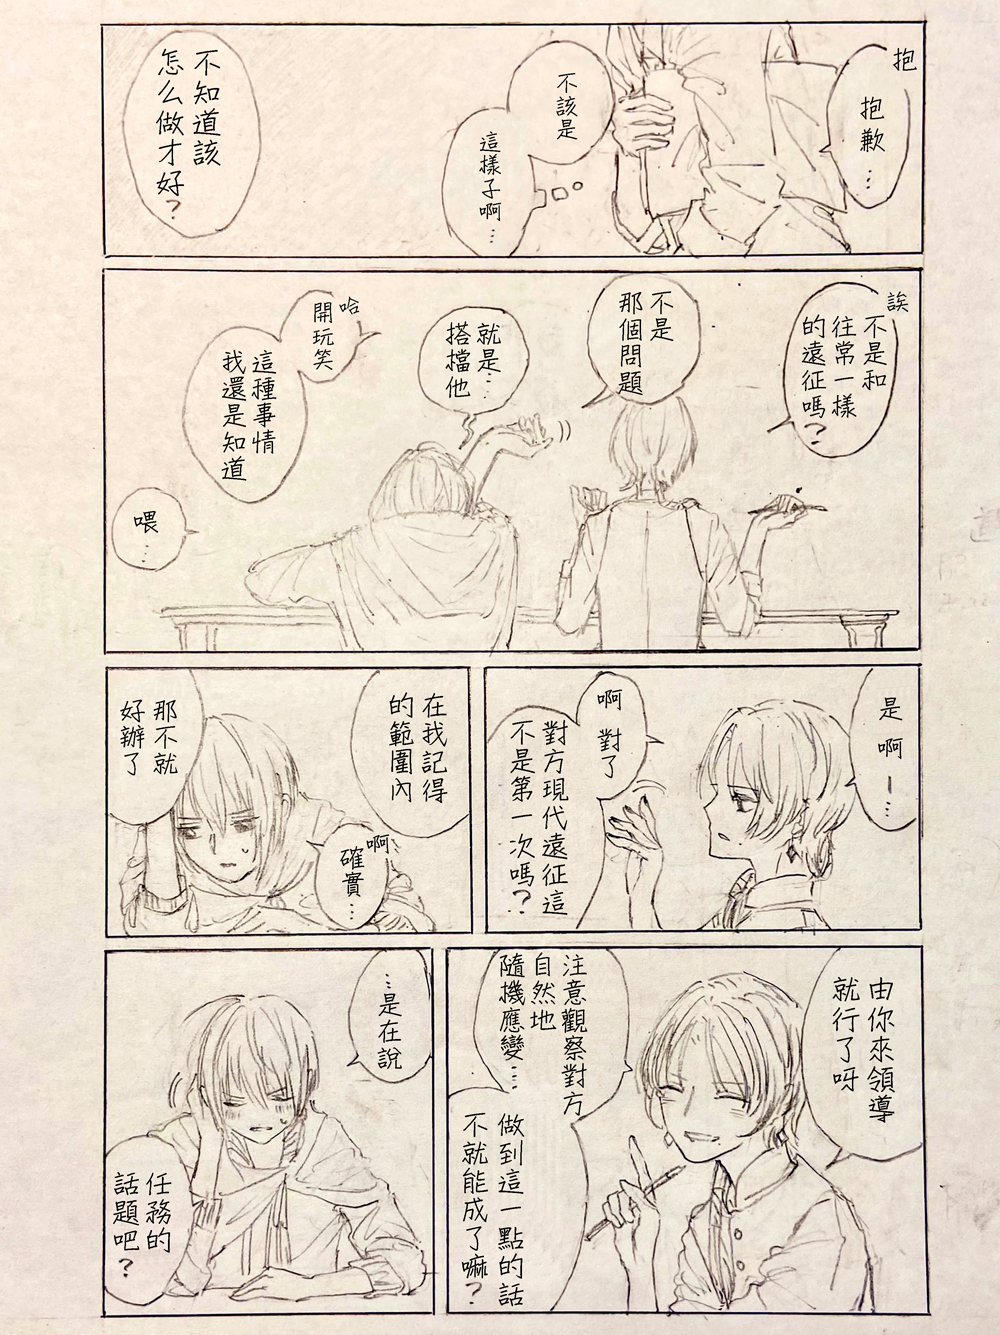 抱
抱歉…
不該是
這樣子啊…
不知道該
怎么做才好？
誒
不是和
往常一樣
的遠征嗎？
不是
那個問題
就是…
搭檔他
哈
開玩笑
這種事情
我還是知道
喂…
是啊—…
啊 對了
對方現代遠征這
不是第一次嗎？
在我記得
的範圍內
啊
確實…
那不就
好辦了
由你來領導
就行了呀
注意觀察對方
自然地
隨機應變…
做到這一點的話
不就能成了嘛？
…是在說
任務的
話題吧？